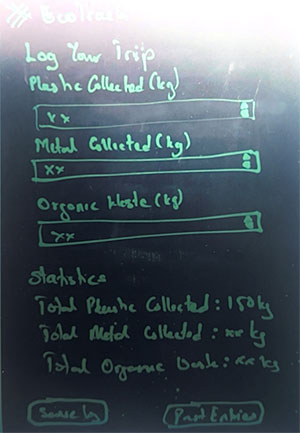 Log Your Trip
Plastic Collected (kg)
xx
Metal Collected (kg)
xx
Organic Waste (kg)
xx
Statistics
Total Plastic Collected : 150 kg
Total Metal Collected : xx kg
Total Organic Waste : xx kg
Past Entries